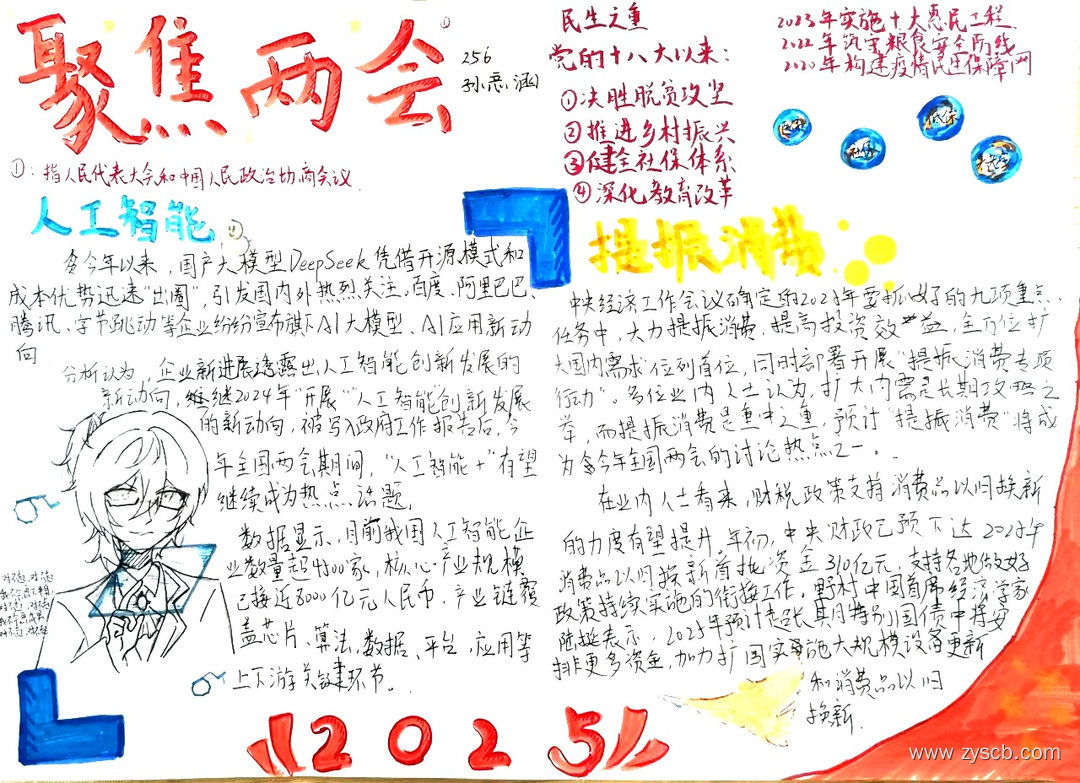 聚焦两会①
256
孙
①：指人民代表大会和中国人民政治协商会议
人工智能
今年以来，国产大模型DeepSeek凭借开源模式和
成本优势迅速"出圈"，引发国内外热烈关注。百度、阿里巴巴、
腾讯、字节跳动等企业纷纷宣布旗下AI大模型、AI应用新动
向
分析认为，企业新进展透露出人工智能创新发展的
新动向，继继2024年"开展""人工智能"创新发展
的新动向，被写入政府工作报告后，今
年全国两会期间，"人工智能+"有望
继续成为热点话题
数据显示，目前我国人工智能企
业数量超4500家，核心产业规模
已接近6000亿元人民币，产业链覆
盖芯片、算法、数据、平台、应用等
上下游关键环节。
民生之重
党的十八大以来：
①决胜脱贫攻坚
②推进乡村振兴
③健全社保体系
④深化教育改革
2023年实施十大惠民工程
2022年筑牢粮食安全防线
2020年构建疫情民生保障网
社保
低保
提振消费
中央经济工作会议确定的2025年要抓好的九项重点
任务中，大力提振消费，提高投资效益，全方位扩
大国内需求位列首位，同时部署开展"提振消费专项
行动"。多位业内人士认为，扩大内需是长期攻略之
举，而提振消费是重中之重，预计"提振消费"将成
为今年全国两会的讨论热点之一。
在业内人士看来，财税政策支持消费品以旧换新
的力度有望提升，年初，中央财政已预下达2025年
消费品以旧换新首批资金810亿元，支持各地做好
政策持续实施的衔接工作。野村中国首席经济学家
陆挺表示，2025年预计超长其月特别国债中将安
排更多资金，加力扩围实施大规模设备更新
和消费品以旧
换新
2025
www.zyscb.com